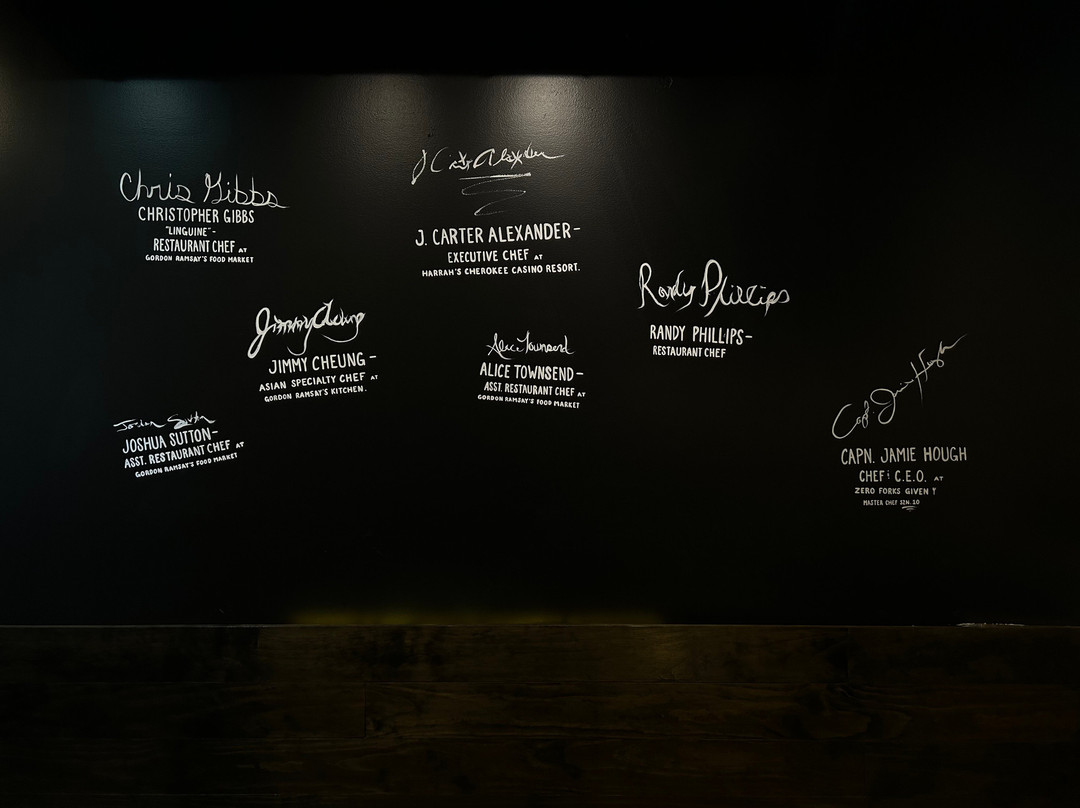 Chris Gibbs
CHRISTOPHER GIBBS
"LINGUINE"-
RESTAURANT CHEF AT
GORDON RAMSAY'S FOOD MARKET
J Carter Alexander
J. CARTER ALEXANDER-
EXECUTIVE CHEF AT
HARRAH'S CHEROKEE CASINO RESORT.
Randy Phillips
RANDY PHILLIPS-
RESTAURANT CHEF
Jimmy Cheung
JIMMY CHEUNG-
ASIAN SPECIALTY CHEF AT
GORDON RAMSAY'S KITCHEN.
Alice Townsend
ALICE TOWNSEND-
ASST. RESTAURANT CHEF AT
GORDON RAMSAY'S FOOD MARKET
Joshua Sutton
JOSHUA SUTTON-
ASST. RESTAURANT CHEF AT
GORDON RAMSAY'S FOOD MARKET
Capt. Jamie Hough
CAPN. JAMIE HOUGH
CHEF & C.E.O. AT
ZERO FORKS GIVEN
MASTER CHEF SZN. 10